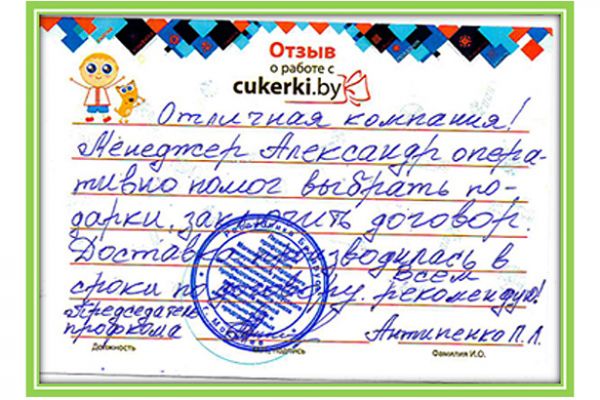 Отзыв
о работе с
cukerki.by
Отличная компания!
Менеджер Александр опера-
тивно помог выбрать по-
дарки, заключить договор.
Доставка производилась в
сроки по договору. Всем рекомендую!
Председатель
профкома
Антипенко Л. А.
Должность
подпись
Фамилия И.О.